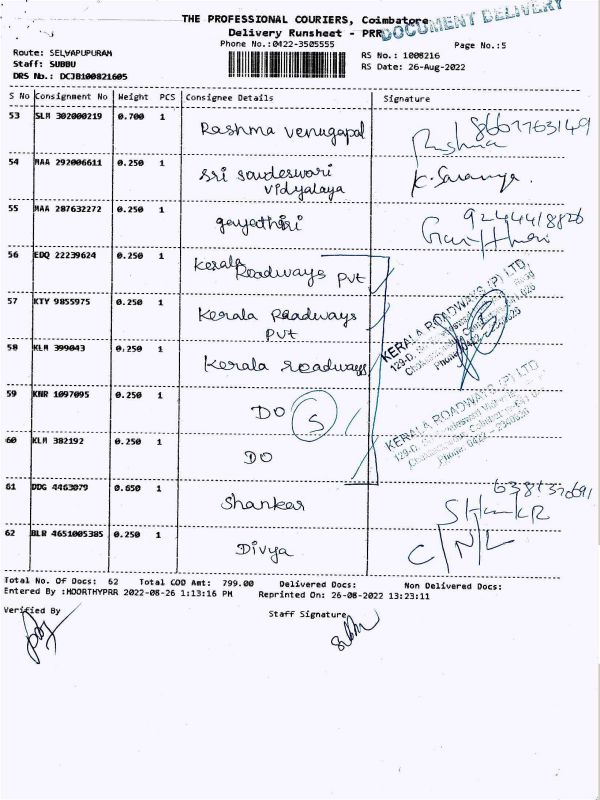 THE PROFESSIONAL COURIERS, Coimbatore
DOCUMENT DELIVERY
Delivery Runsheet - PRR
Phone No.:0422-3505555
Page No.:5
Route: SELVAPUPURAM
RS No.: 1008216
Staff: SUBBU
RS Date: 26-Aug-2022
DRS No.: DCJB100821605
S No Consignment No Weight PCS Consignee Details Signature
53 SLM 302000219 0.700 1 Rashma Venugapal Rashma 8667763149
54 MAA 292006611 0.250 1 Sri Soudeswari Vidyalaya K. Saranya.
55 MAA 287632272 0.250 1 gayathiri 9244418826
56 EDQ 22239624 0.250 1 Kerala Roadways PVT
57 KTY 9855975 0.250 1 Kerala Roadways PVT
KERALA ROADWAYS (P) LTD.
58 KLM 399043 0.250 1 Kerala roadways
59 KNR 1097095 0.250 1 DO 5
KERALA ROADWAYS (P) LTD.
60 KLM 382192 0.250 1 DO
61 DDG 4463079 0.650 1 Shankar
62 BLR 4651005385 0.250 1 Divya C/N/L
Total No. Of Docs: 62 Total COD Amt: 799.00 Delivered Docs: Non Delivered Docs:
Entered By :MOORTHYPRR 2022-08-26 1:13:16 PM Reprinted On: 26-08-2022 13:23:11
Verified By
Staff Signature
Subbu